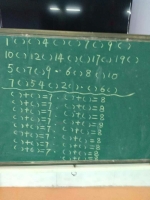 1 ( ) ( ) 4 ( ) ( ) 7 ( ) 9 ( )
10 ( ) 12 ( ) 14 ( ) ( ) 17 ( ) 19 ( )
5 ( ) 7 ( ) 9 6 ( ) 8 ( ) 10
7 ( ) 5 4 ( ) 2 ( ) ( ) 6 ( )
( ) + ( ) = 7 ( ) + ( ) = 8
( ) + ( ) = 7 ( ) + ( ) = 8
( ) + ( ) = 7 ( ) + ( ) = 8
( ) + ( ) = 7 ( ) + ( ) = 8
( ) + ( ) = 7 ( ) + ( ) = 8
( ) + ( ) = 7 ( ) + ( ) = 8
( ) + ( ) = 7 ( ) + ( ) = 8
( ) + ( ) = 8